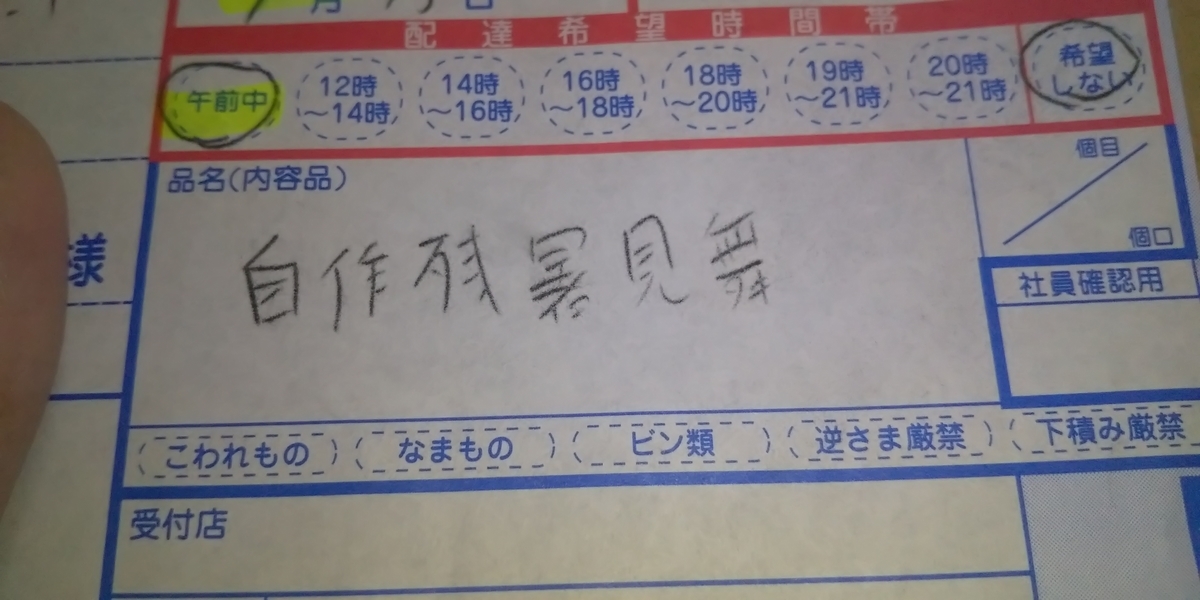 月 日
配達希望時間帯
午前中
12時
~14時
14時
~16時
16時
~18時
18時
~20時
19時
~21時
20時
~21時
希望
しない
品名(内容品)
個目
個口
自作残暑見舞
様
社員確認用
こわれもの
なまもの
ビン類
逆さま厳禁
下積み厳禁
受付店